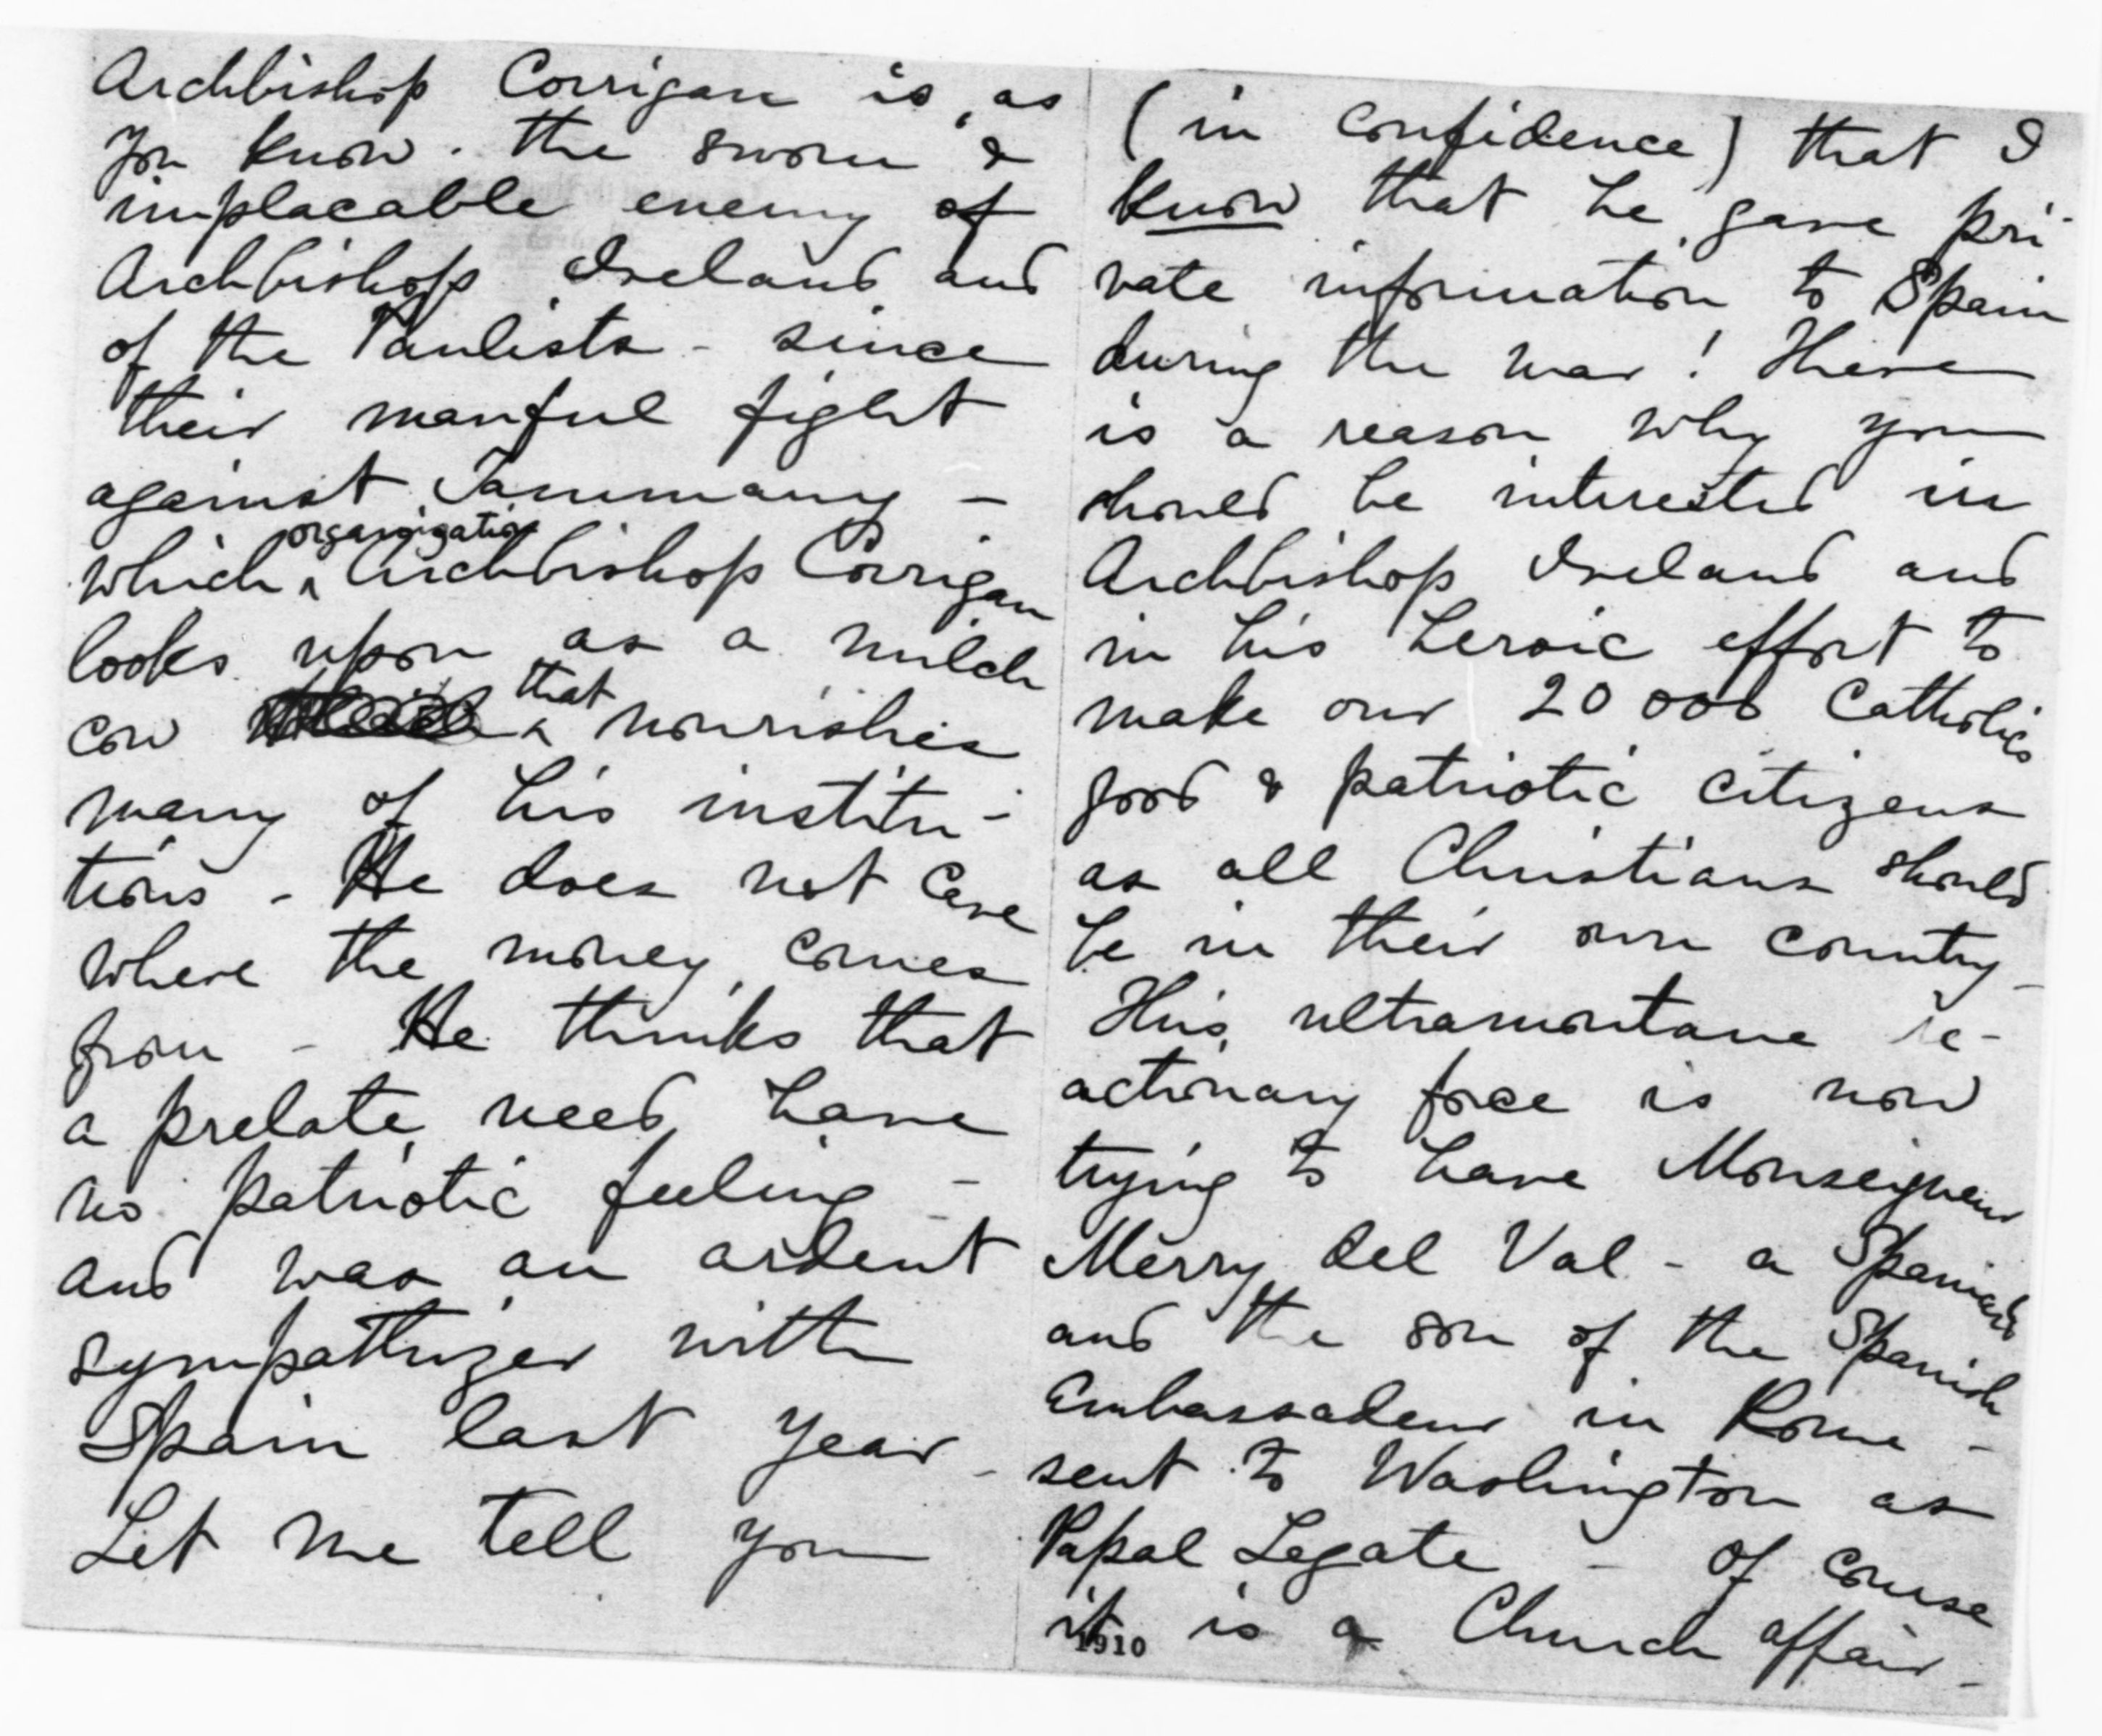 Archbishop Corrigan is, as
you know. the sworn &
implacable enemy of
Archbishop Ireland and
of the Paulists - since
their manful fight
against Tammany -
which organization Archbishop Corrigan
looks upon as a milch
cow that nourishes
many of his institu-
tions - He does not care
where the money comes
from - He thinks that
a prelate need have
no patriotic feeling -
and was an ardent
sympathizer with
Spain last year -
Let me tell you
(in confidence) that I
know that he gave pri-
vate information to Spain
during the war! There
is a reason why you
should be interested in
Archbishop Ireland and
in his heroic effort to
make our 20 000 Catholics
good & patriotic citizens
as all Christians should
be in their own country -
This ultramontane re-
actionary force is now
trying to have Monseigneur
Merry del Val - a Spaniard
and the son of the Spanish
Embassadeur in Rome -
sent to Washington as
Papal Legate - Of course
it is a Church affair -
1910